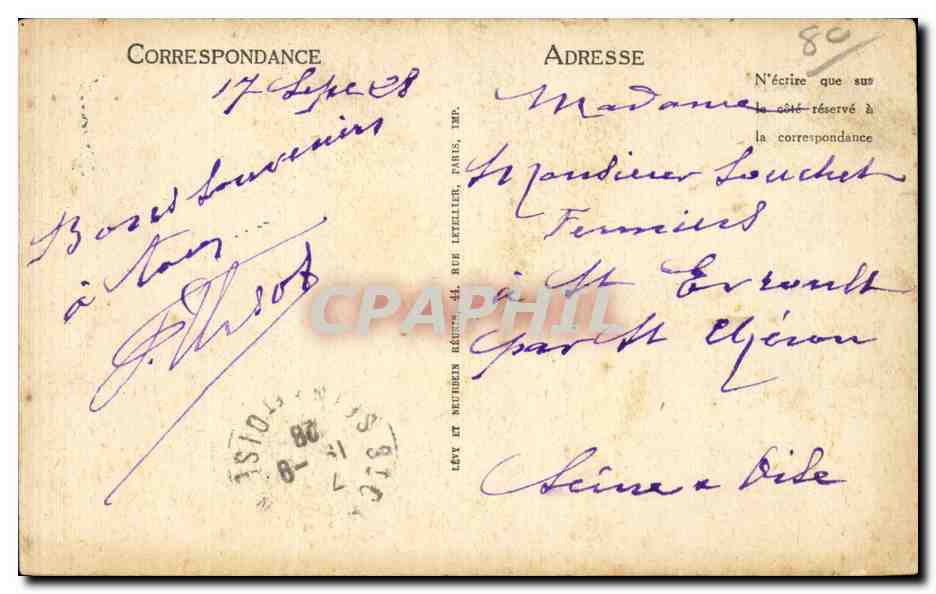 80
CORRESPONDANCE
17 Sept 28
Bons Souvenirs
à tous
ADRESSE
N'écrire que sur
le côté réservé à
la correspondance
Madame
Monsieur Souchet
Fermiers
à St Evroult
par St Chéron
Seine & Oise
LÉVY ET NEURDEIN RÉUNIS, 44, RUE LETELLIER, PARIS, IMP.
CPAPHIL
28